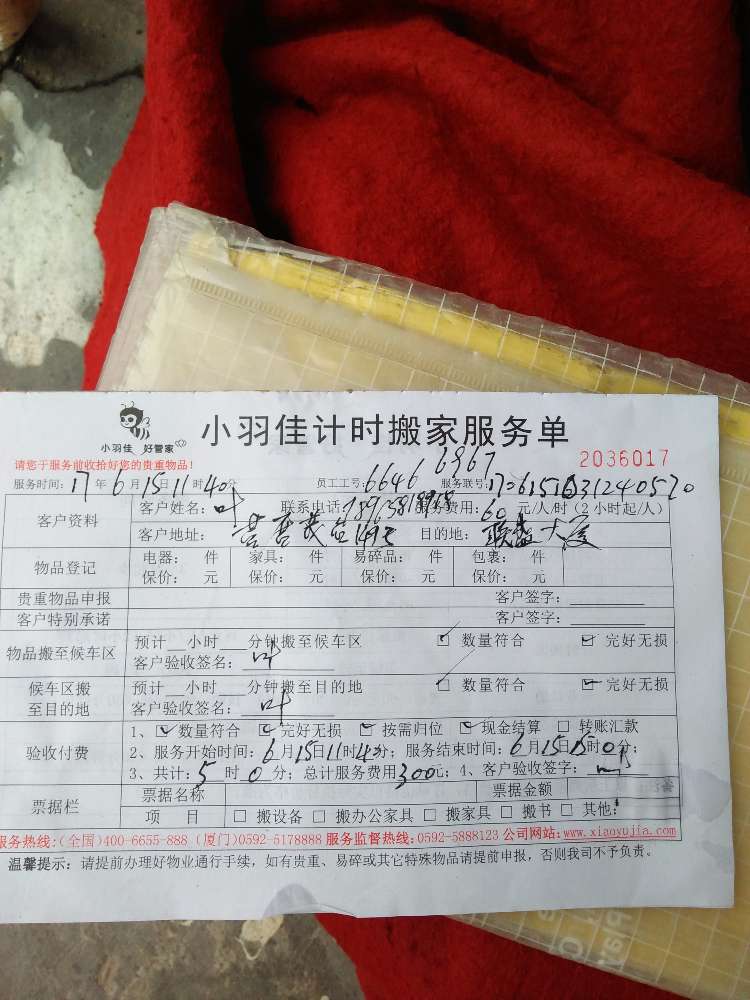 小羽佳 好管家
小羽佳计时搬家服务单
请您于服务前收拾好您的贵重物品！
2036017
服务时间：17年6月15日11时40分 员工工号：6646 6967 服务联号：
客户资料
客户姓名：叶 联系电话： 服务费用：60元/人/时（2小时起/人）
客户地址： 目的地：联盛大厦
物品登记
电器： 件 家具： 件 易碎品： 件 包裹： 件
保价： 元 保价： 元 保价： 元 保价： 元
贵重物品申报 客户签字：
客户特别承诺 客户签字：
物品搬至候车区
预计__小时___分钟搬至候车区 ☑ 数量符合 ☑ 完好无损
客户验收签名：叶
候车区搬
至目的地
预计__小时___分钟搬至目的地 ☑ 数量符合 ☑ 完好无损
客户验收签名：叶
验收付费
1、☑ 数量符合 ☑ 完好无损 ☑ 按需归位 ☑ 现金结算 □ 转账汇款
2、服务开始时间：6月15日11时40分；服务结束时间：6月15日15时0分；
3、共计：5时0分；总计服务费用300元；4、客户验收签字：
票据栏
票据名称 票据金额
项 目 □ 搬设备 □ 搬办公家具 □ 搬家具 □ 搬书 □ 其他：
服务热线：(全国)400-6655-888 (厦门)0592-5178888 服务监督热线：0592-5888123 公司网站：www.xiaoyujia.com
温馨提示：请提前办理好物业通行手续，如有贵重、易碎或其它特殊物品请提前申报，否则我司不予负责。